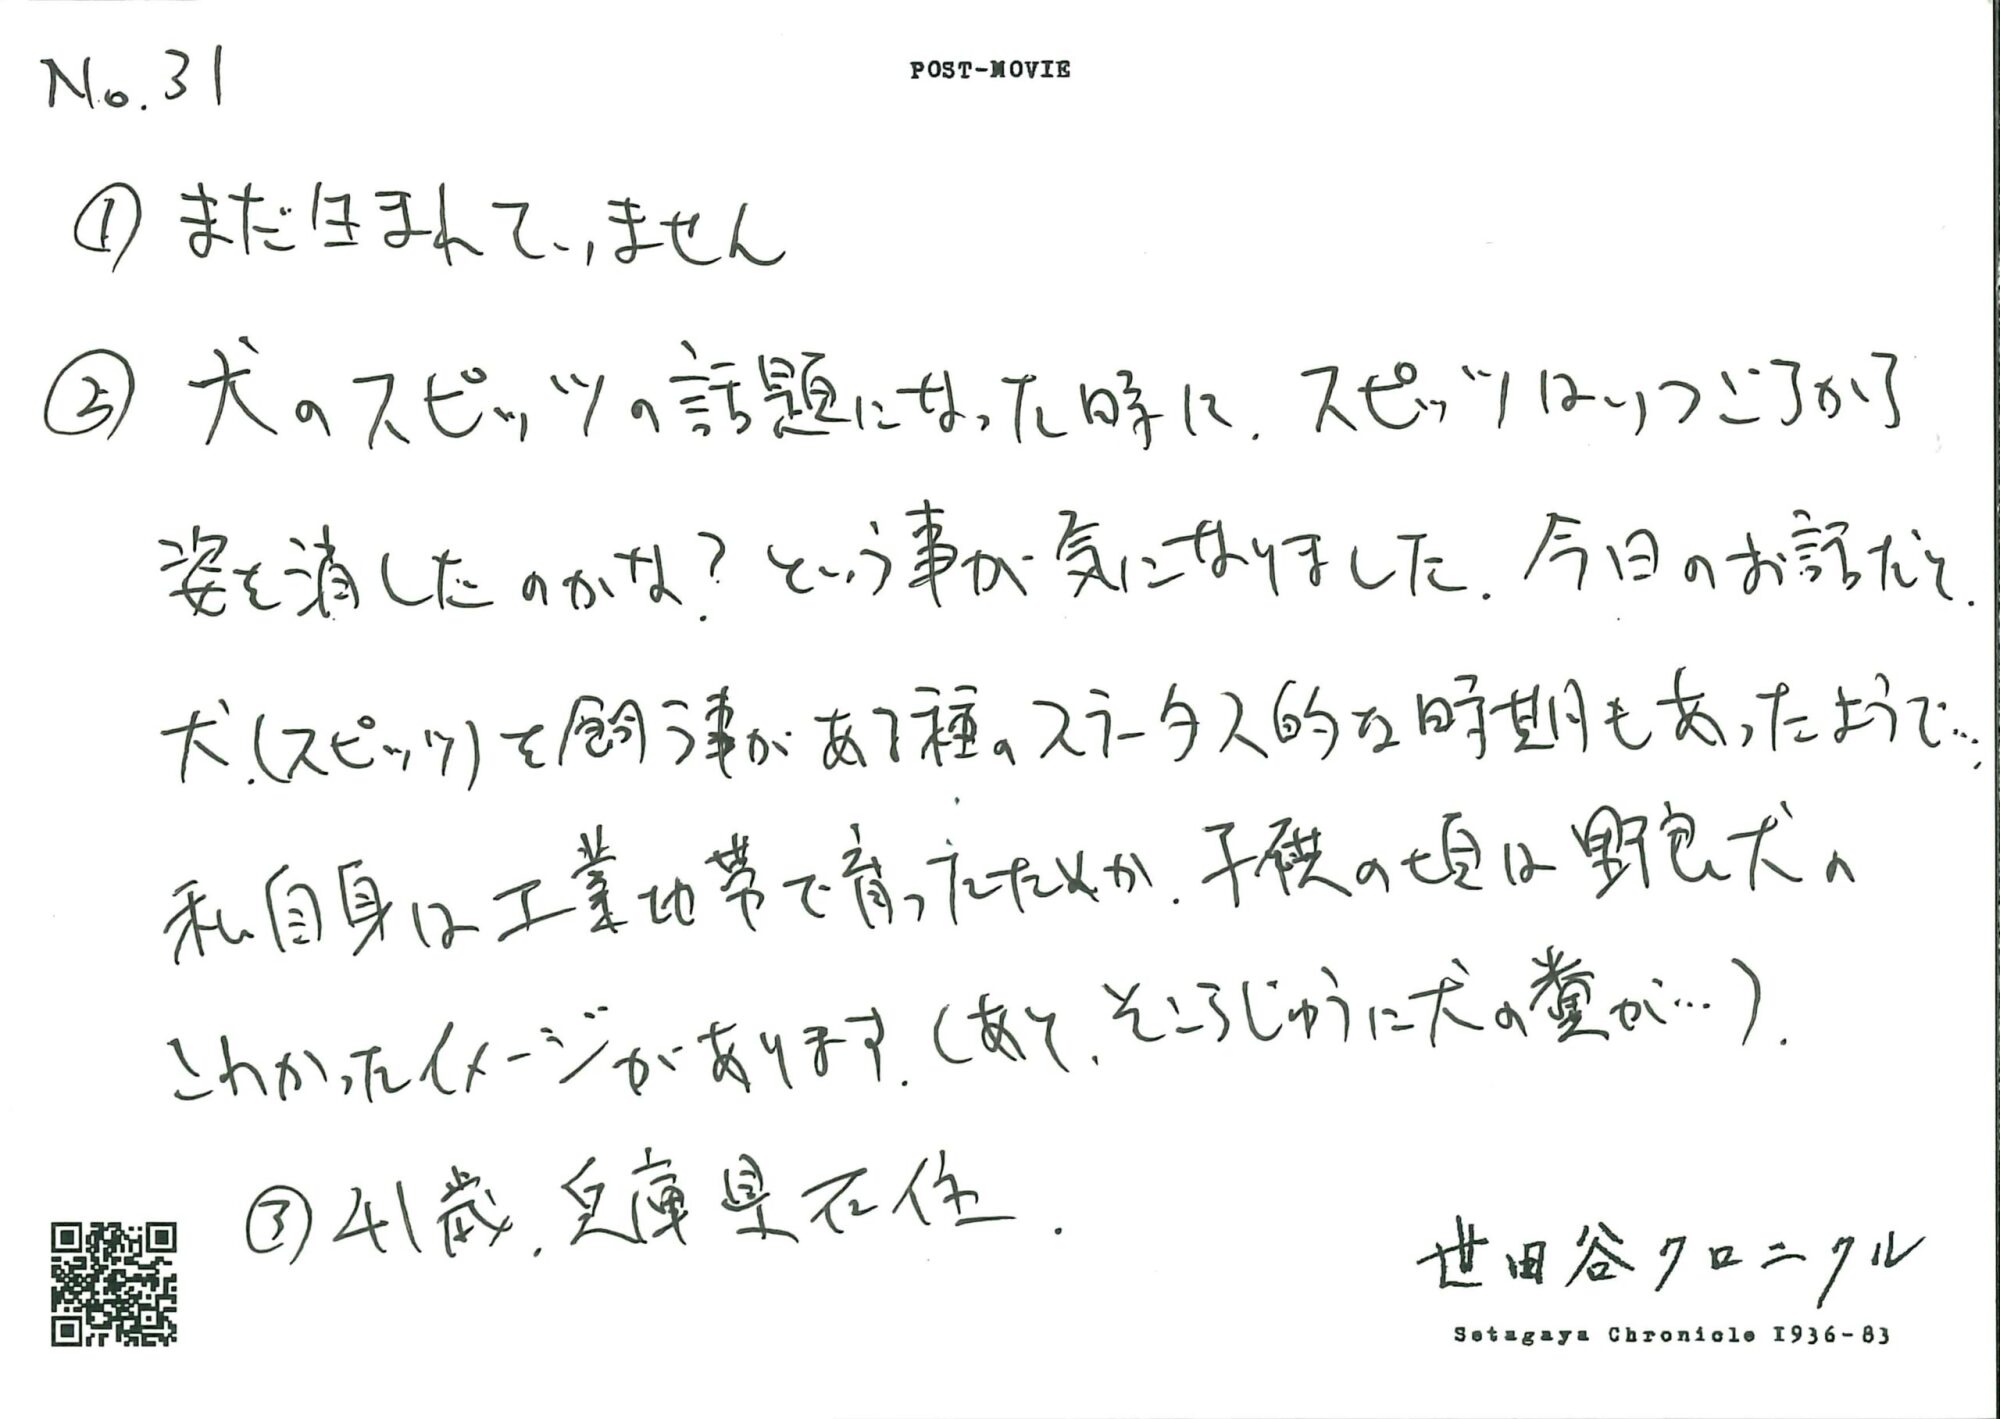 No.31
POST-MOVIE
① まだ生まれていません
② 犬のスピッツの話題になった時に、スピッツはいつごろから
姿を消したのかな？という事が気になりました。今日のお話だと、
犬（スピッツ）を飼う事がある種のステータス的な時期もあったようで…、
私自身は工業地帯で育ったためか、子供の頃は野良犬の
こわかったイメージがあります。（あと、そこらじゅうに犬の糞が…）。
③ 41歳、兵庫県在住。
世田谷クロニクル
Setagaya Chronicle 1936-83